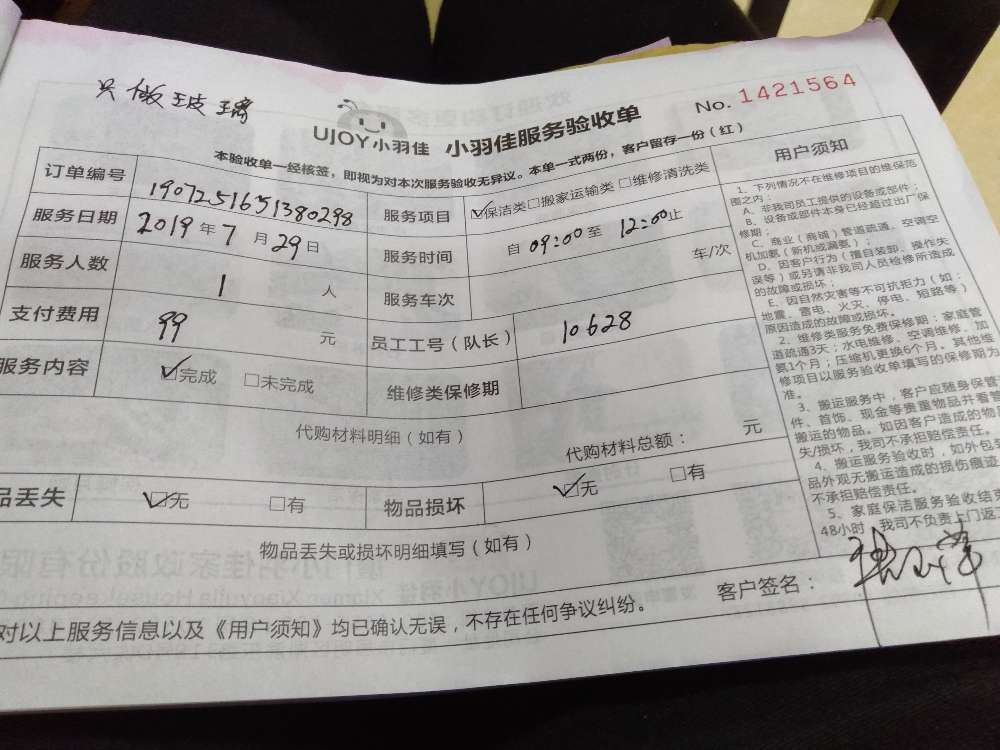 只做玻璃
No. 1421564
UJOY小羽佳 小羽佳服务验收单
本验收单一经核签，即视为对本次服务验收无异议。本单一式两份，客户留存一份（红）
订单编号 1907251651380298 服务项目 ☑保洁类□搬家运输类□维修清洗类
服务日期 2019年7月29日 服务时间 自09:00至12:00止
服务人数 1人 服务车次 车/次
支付费用 99元 员工工号（队长） 10628
服务内容 ☑完成 □未完成 维修类保修期
代购材料明细（如有）
代购材料总额： 元
品丢失 ☑无 □有 物品损坏 ☑无 □有
物品丢失或损坏明细填写（如有）
对以上服务信息以及《用户须知》均已确认无误，不存在任何争议纠纷。
客户签名：
用户须知
1、下列情况不在维修项目的维保范
围之内：
A、非我司员工提供的设备或部件；
B、设备或部件本身已经超过出厂保
修期；
C、商业（商铺）管道疏通、空调空
机加氨（新机或漏氨）；
D、因客户行为（擅自装卸、操作失
误等）或另请非我司人员检修所造成
的故障或损坏；
E、因自然灾害等不可抗拒力（如：
地震、雷电、火灾、停电、短路等）
原因造成的故障或损坏。
2、维修类服务免费保修期：家庭管
道疏通3天；水电维修、空调维修、加
氨1个月；压缩机更换6个月。其他维
修项目以服务验收单填写的保修期为
准。
3、搬运服务中，客户应随身保管
件、首饰、现金等贵重物品并看管
搬运的物品。如因客户造成的物
失/损坏，我司不承担赔偿责任。
4、搬运服务验收时，如外包
品外观无搬运造成的损伤痕迹
不承担赔偿责任。
5、家庭保洁服务验收结
48小时，我司不负责上门返